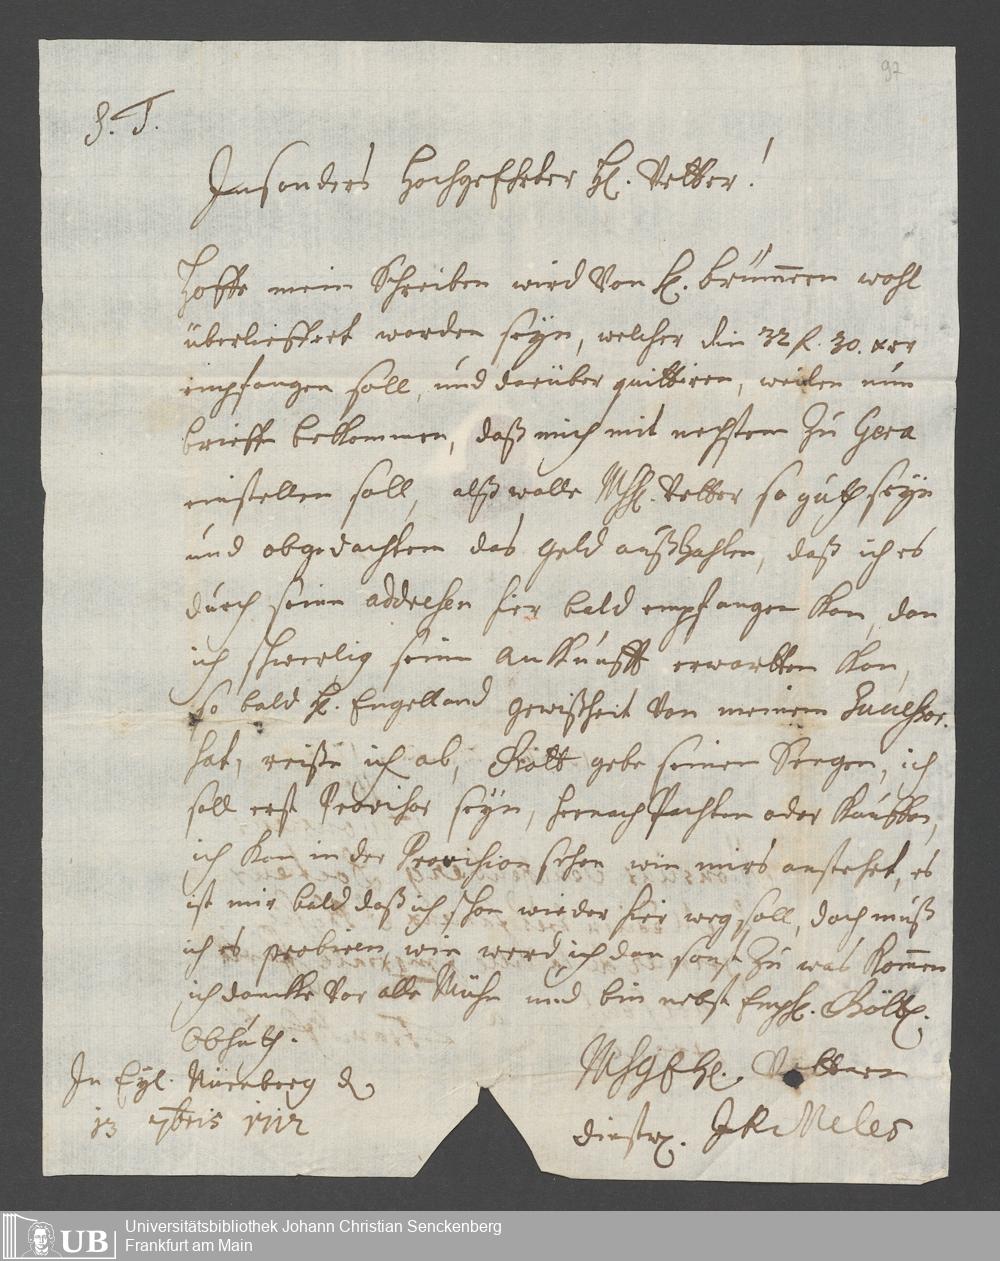 97
S. T.
Insonders Hochgeehrter H. Vetter!
Hoffe mein Schreiben wird von H. Brümmern wohl
überlieffert worden seyn, welcher die 32 f. 30. xer
empfangen soll, und darüber quittiren, weilen nun
brieffe bekommen, daß mich mit nechstem zu Gera
einstellen soll, alß wolle MhH. Vetter so guth seyn
und obgedachtem das geld außzahlen, daß ich es
durch seine addresse hier bald empfangen kan, dan
ich schwerlig seine ankunfft erwartten kan,
so bald H. Engelland gewißheit von meinem
hat, reiße ich ab, Gott gebe seinen Seegen, ich
soll erst Provisor seyn, hernach Pachten oder Kauffen,
ich kan in der Provision sehen wie mirs anstehet, es
ist mir bald daß ich schon wieder hier weg soll, doch muß
ich es probiren, wie werd ich dan sonst zu was kommen
ich dancke vor alle Mühe und bin nebst Empf. Göttl.
Obhuth.
In Eyl. Nürnberg d.
13 7bris 1712
MhgeH. Vettern
dienstw. J R Meles
Universitätsbibliothek Johann Christian Senckenberg
Frankfurt am Main
UB